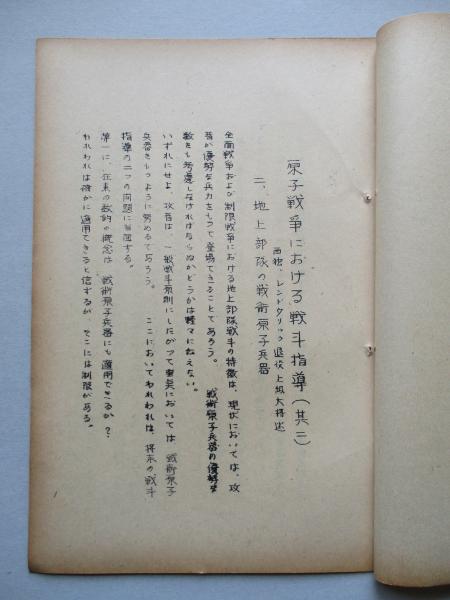 原子戦争における戦斗指導（其三）
西独、レンドウリック退役上級大将述
二、地上部隊の戦術原子兵器
全面戦争および制限戦争における地上部隊戦斗の特徴は、現状においては、攻
者が優勢な兵力をもって登場できることであろう。 戦術原子兵器の優勢な
数をも考慮しなければならぬかどうかは軽々に云えない。
いずれにせよ、攻者は、一般戦斗原則にしたがって重点においては、戦術原子
兵器をもつように努めるであろう。 ここにおいてわれわれは、将来の戦斗
指導の二つの問題に当面する。
第一に、在来の数的の概念は、戦術原子兵器にも適用できるか？
われわれは確かに適用できると信ずるが、そこには制限がある。